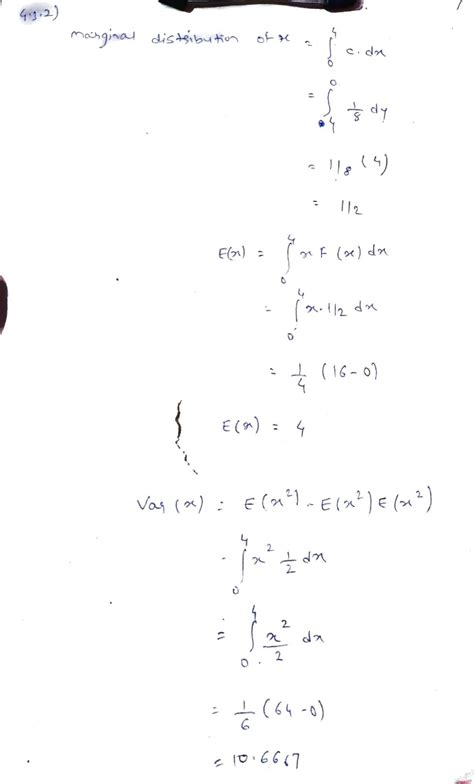 4.3.2)
marginal distribution of x = ∫₀⁴ c. dx
= ∫₄⁰ 1/8 dy
= 1/8 (4)
= 1/2
E(x) = ∫₀⁴ x F (x) dx
= ∫₀⁴ x. 1/2 dx
= 1/4 (16-0)
E(x) = 4
Var (x) = E(x²) - E(x²) E(x²)
- ∫₀⁴ x² 1/2 dx
= ∫₀⁴ x²/2 dx
= 1/6 (64-0)
= 10.6667